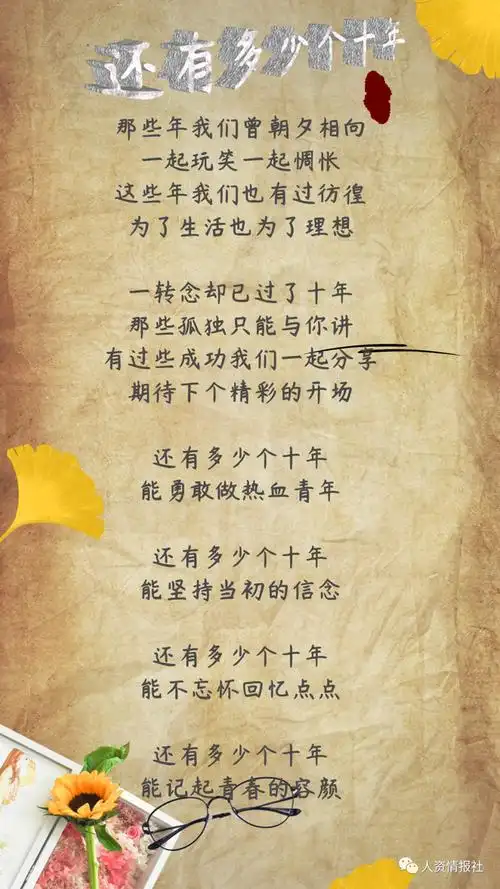 还有多少个十年
那些年我们曾朝夕相向
一起玩笑一起惆怅
这些年我们也有过彷徨
为了生活也为了理想
一转念却已过了十年
那些孤独只能与你讲
有过些成功我们一起分享
期待下个精彩的开场
还有多少个十年
能勇敢做热血青年
还有多少个十年
能坚持当初的信念
还有多少个十年
能不忘怀回忆点点
还有多少个十年
能记起青春的容颜
人资情报社